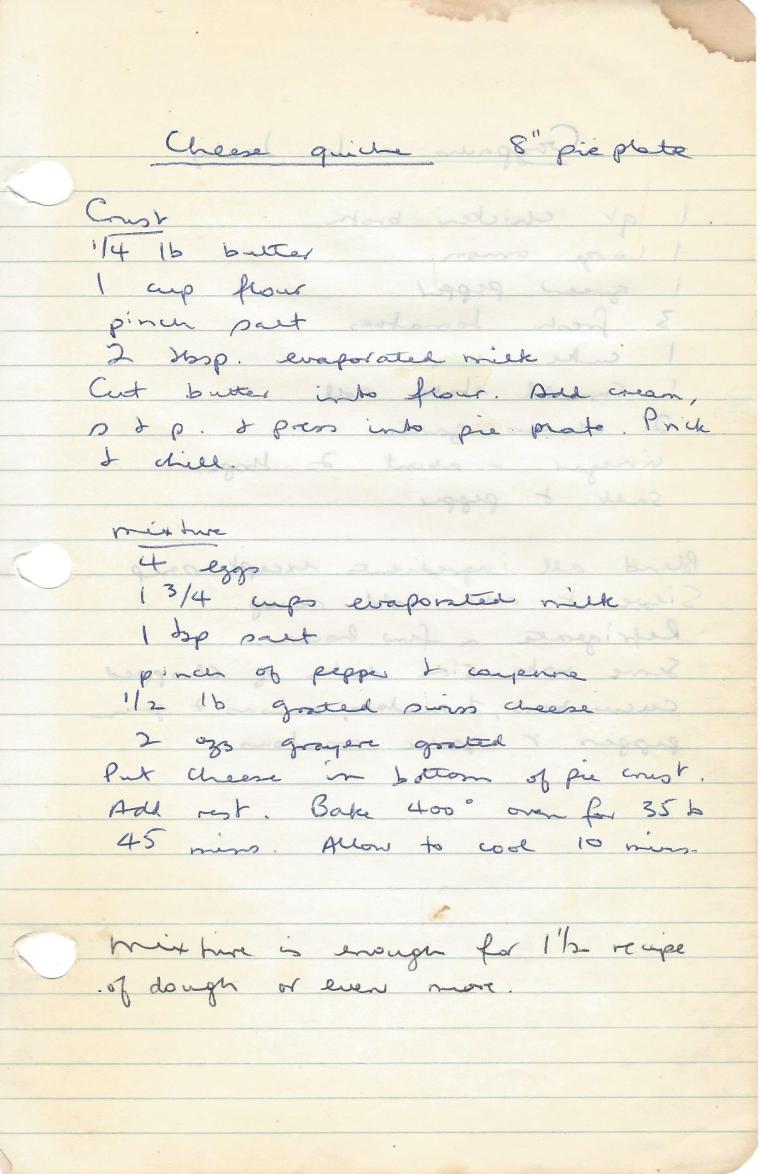 Cheese quiche 8" pie plate
Crust
1/4 lb butter
1 cup flour
pinch salt
2 tbsp. evaporated milk
Cut butter into flour. Add cream,
s & p. & press into pie plate. Prick
& chill.
mixture
4 eggs
1 3/4 cups evaporated milk
1 tsp salt
pinch of pepper & cayenne
1/2 lb grated swiss cheese
2 ozs grayere grated
Put cheese in bottom of pie crust.
Add rest. Bake 400° oven for 35 to
45 mins. Allow to cool 10 mins.
Mixture is enough for 1 1/2 recipe
of dough or even more.